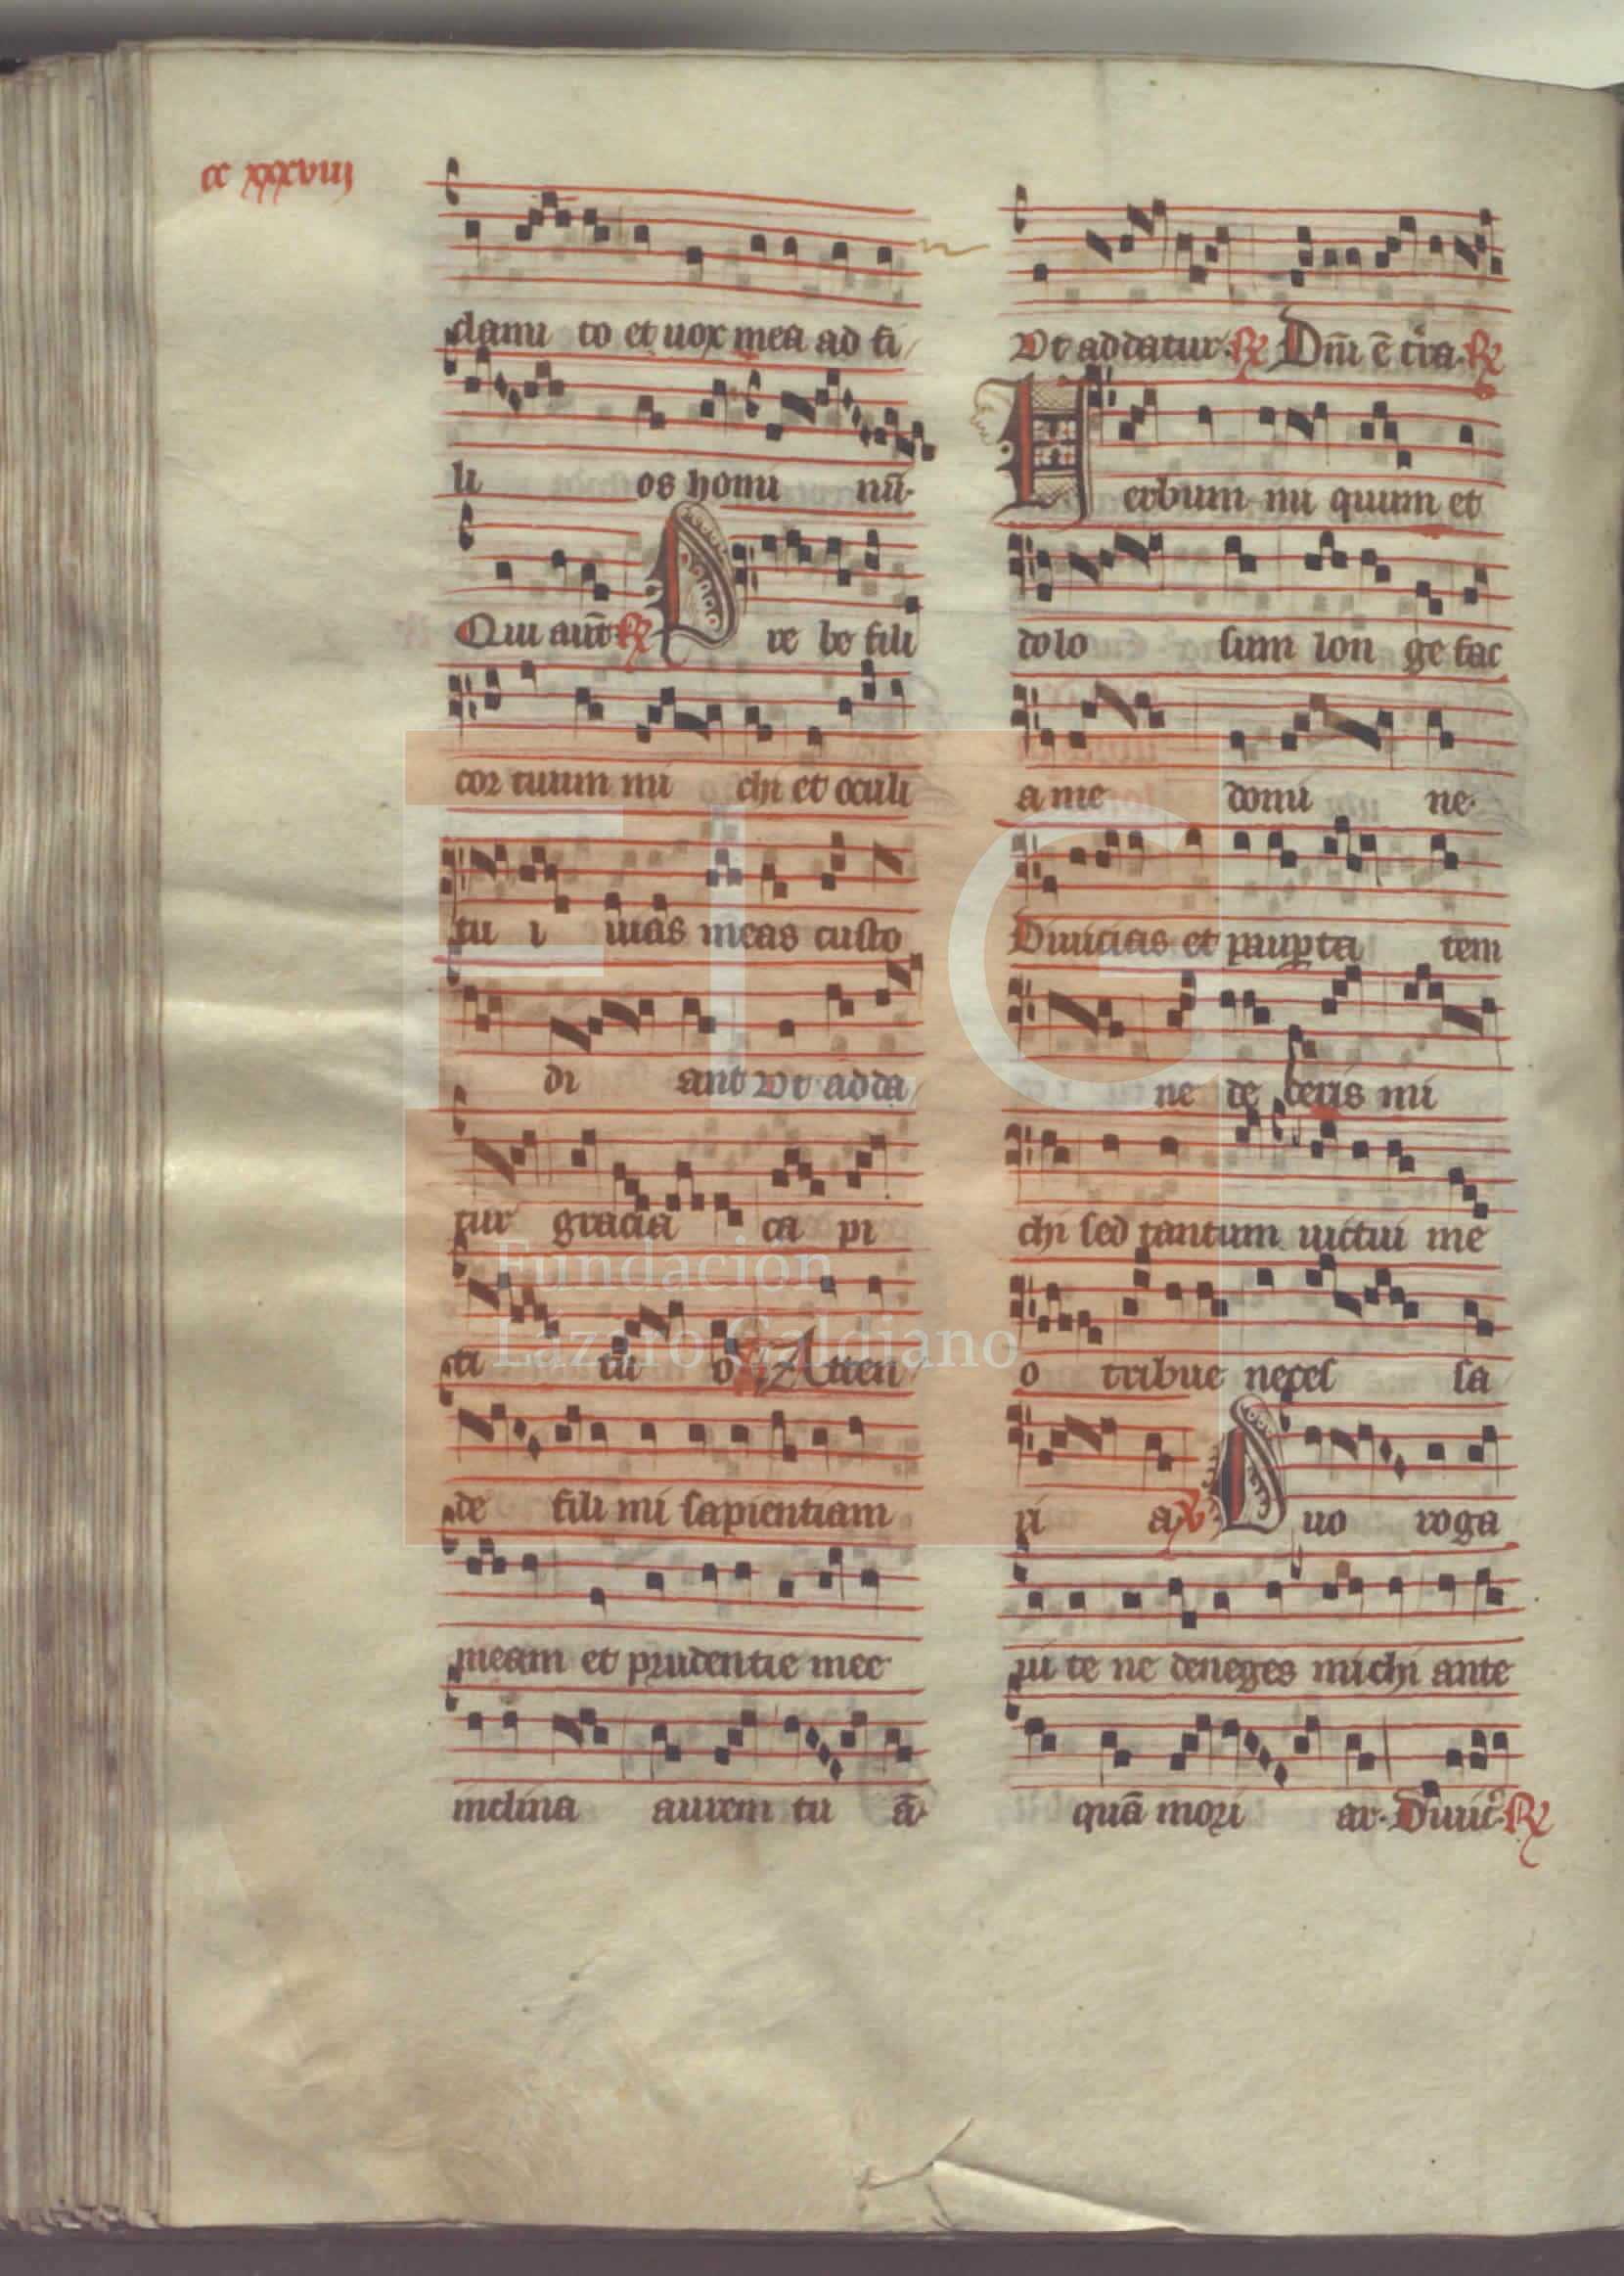 cc xxxviii
clami to et uox mea ad fi
li os homi nū.
Qui aut̄ ℟ Pre be fili
cor tuum mi chi et oculi
tu i uias meas custo
di ant Vt adda
tur gracia ca pi
ti tu o ℣ Atten
de fili mi sapientiam
meam et prudentie mee
inclina aurem tu ā.
Vt addatur. ℟ Dn̄i ē tr̄a. ℟
Verbum ini quum et
dolo sum lon ge fac
a me domi ne.
Diuicias et paup̄ta tem
ne de deris mi
chi sed tantum uictui me
o tribue neces sa
ri a ℣ Duo roga
ui te ne deneges michi ante
quā mori ar. Diuic̄. ℟
FLG
Fundación
Lázaro Galdiano